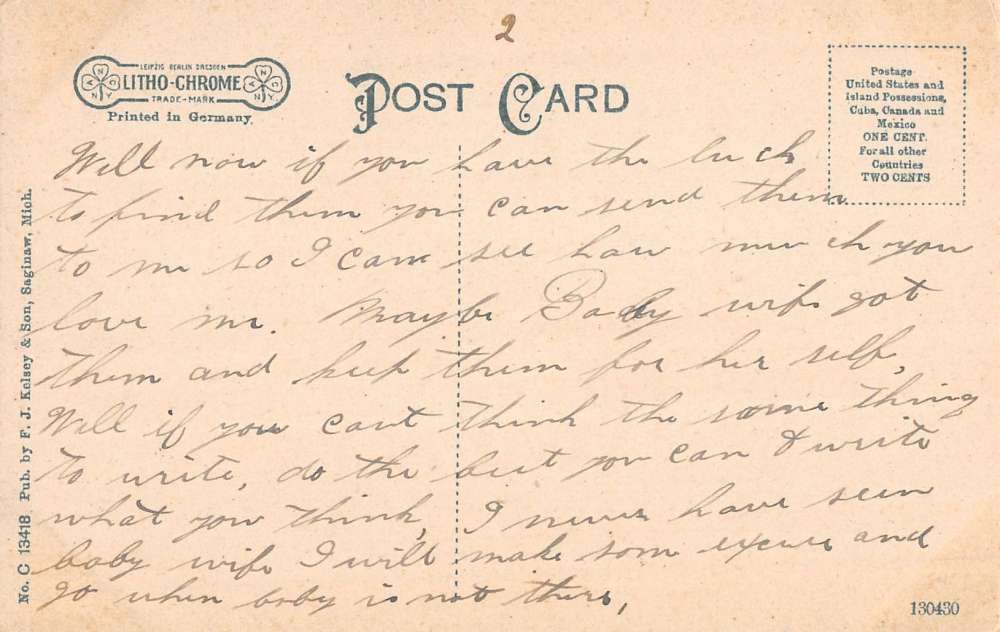 2
LEIPZIG BERLIN DRESDEN
LITHO-CHROME
TRADE-MARK
A N C
N Y
A N C
N.Y.
Printed in Germany.
POST CARD
Postage
United States and
Island Possessions,
Cuba, Canada and
Mexico
ONE CENT.
For all other
Countries
TWO CENTS
Well now if you have the luck
to find them you can send them
to me so I can see how much you
love me. Maybe Baby wife got
them and keep them for her self,
Well if you cant think the same thing
to write, do the best you can & write
what you think, I never have seen
baby wife I will make some excuse and
go when baby is not there,
No. C 13418 Pub. by F. J. Kelsey & Son, Saginaw, Mich.
130430